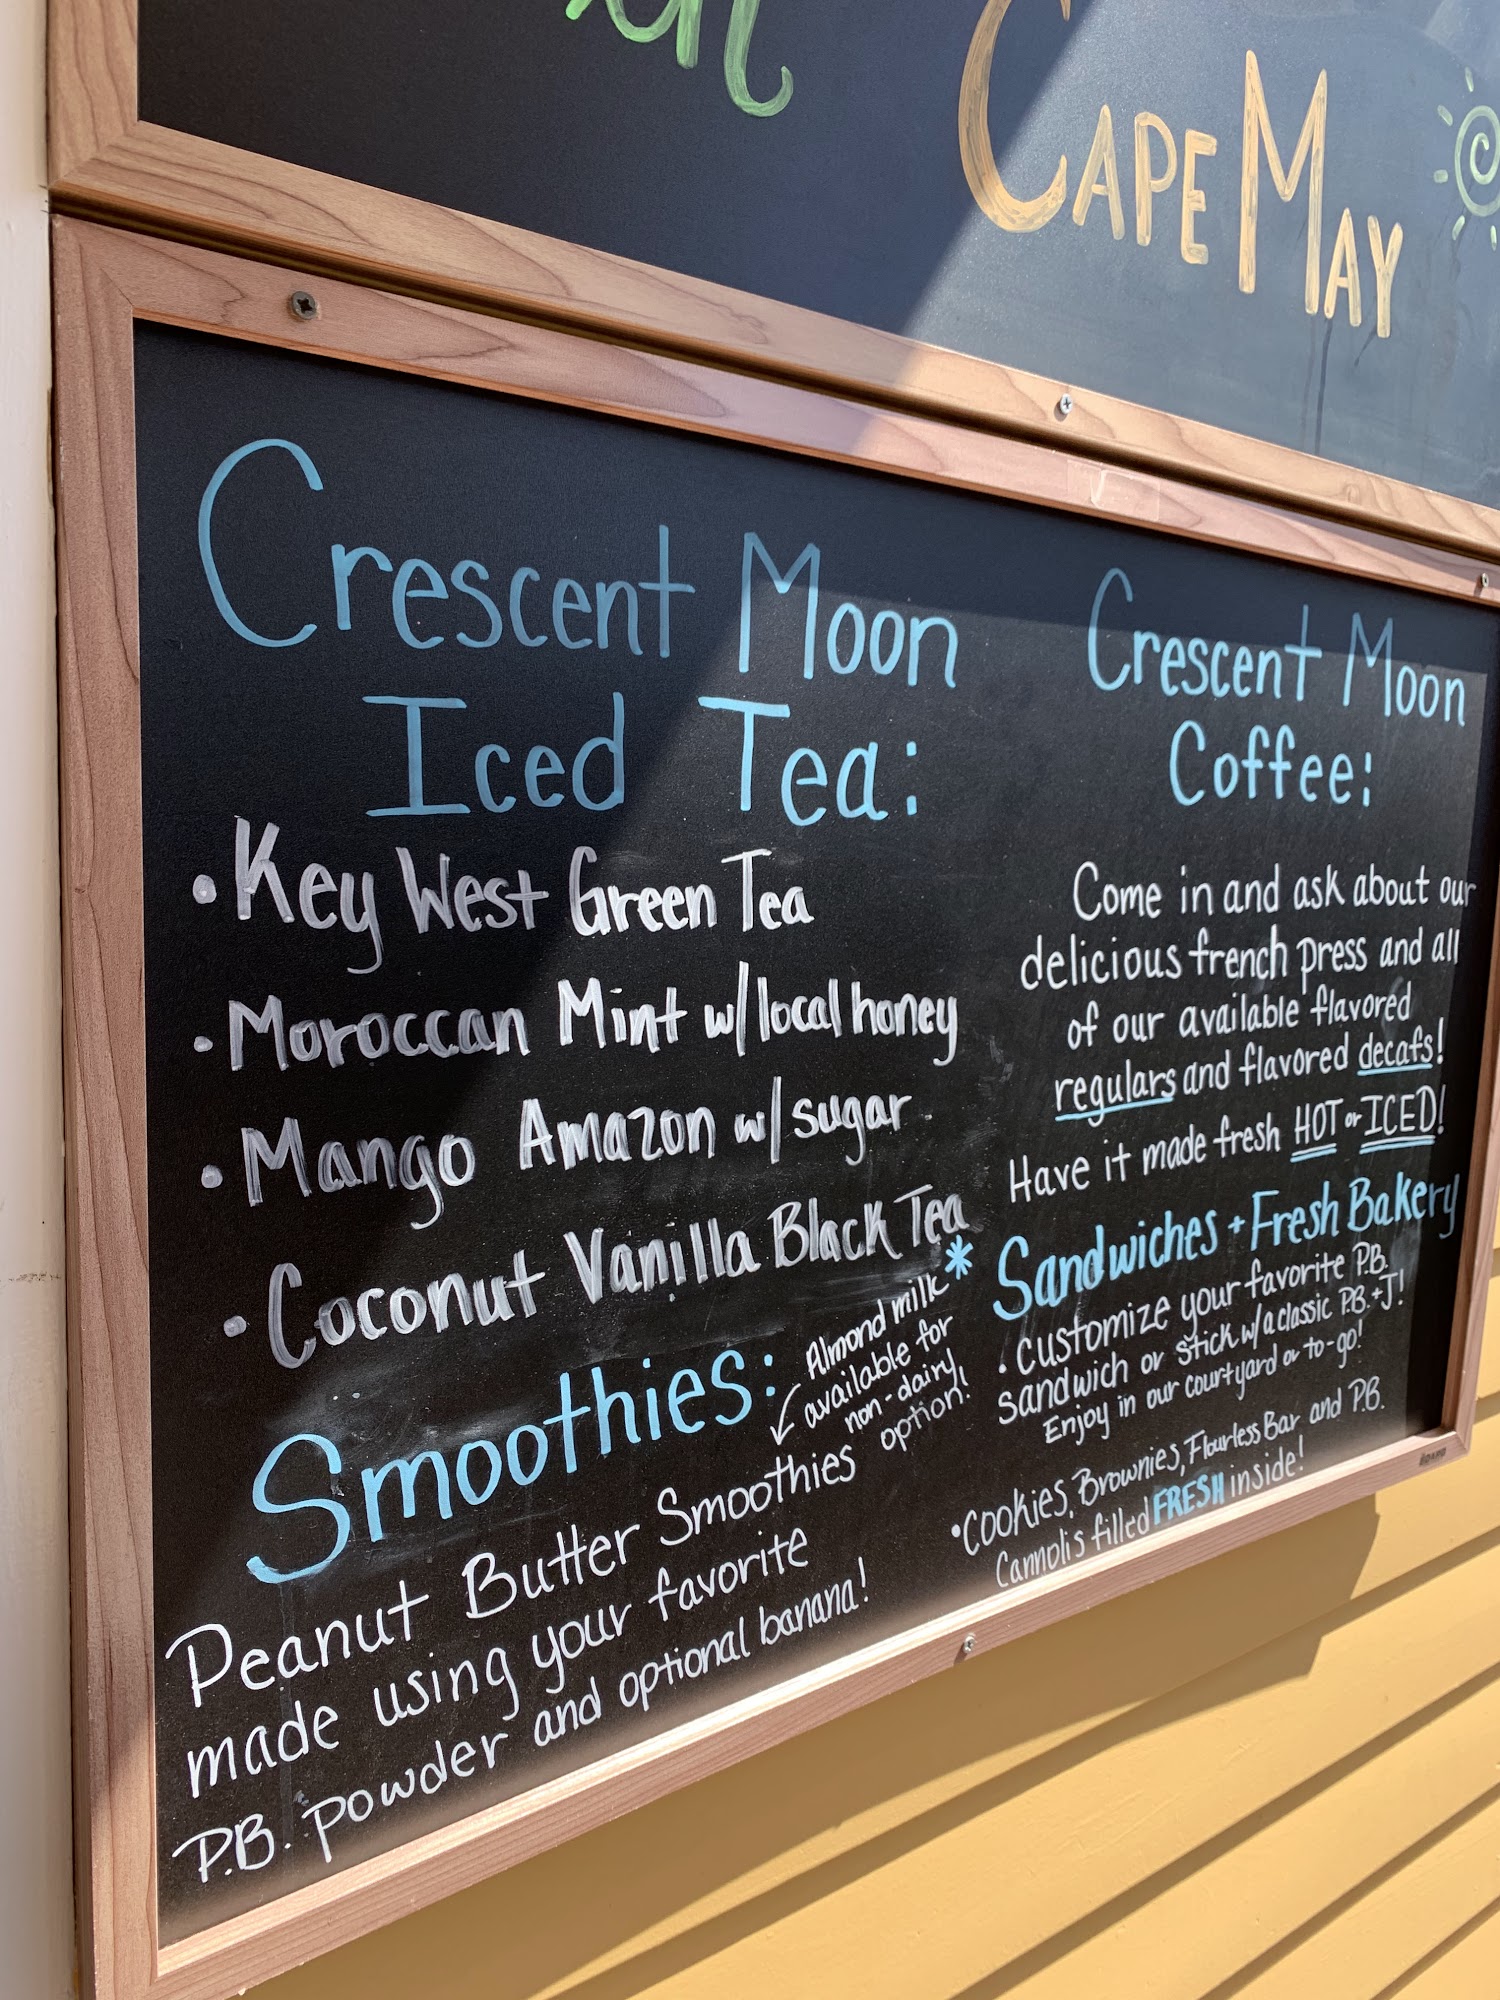 Cape May
Crescent Moon
Iced Tea:
• Key West Green Tea
• Moroccan Mint w/local honey
• Mango Amazon w/sugar
• Coconut Vanilla Black Tea
Smoothies:
* Almond milk
available for
non-dairy
option!
Peanut Butter Smoothies
made using your favorite
P.B. powder and optional banana!
Crescent Moon
Coffee:
Come in and ask about our
delicious french press and all
of our available flavored
regulars and flavored decafs!
Have it made fresh HOT or ICED!
Sandwiches + Fresh Bakery
• customize your favorite P.B.
sandwich or stick w/a classic P.B.+J!
Enjoy in our courtyard or to-go!
• cookies, Brownies, Flourless Bar and P.B.
Cannolis filled FRESH inside!